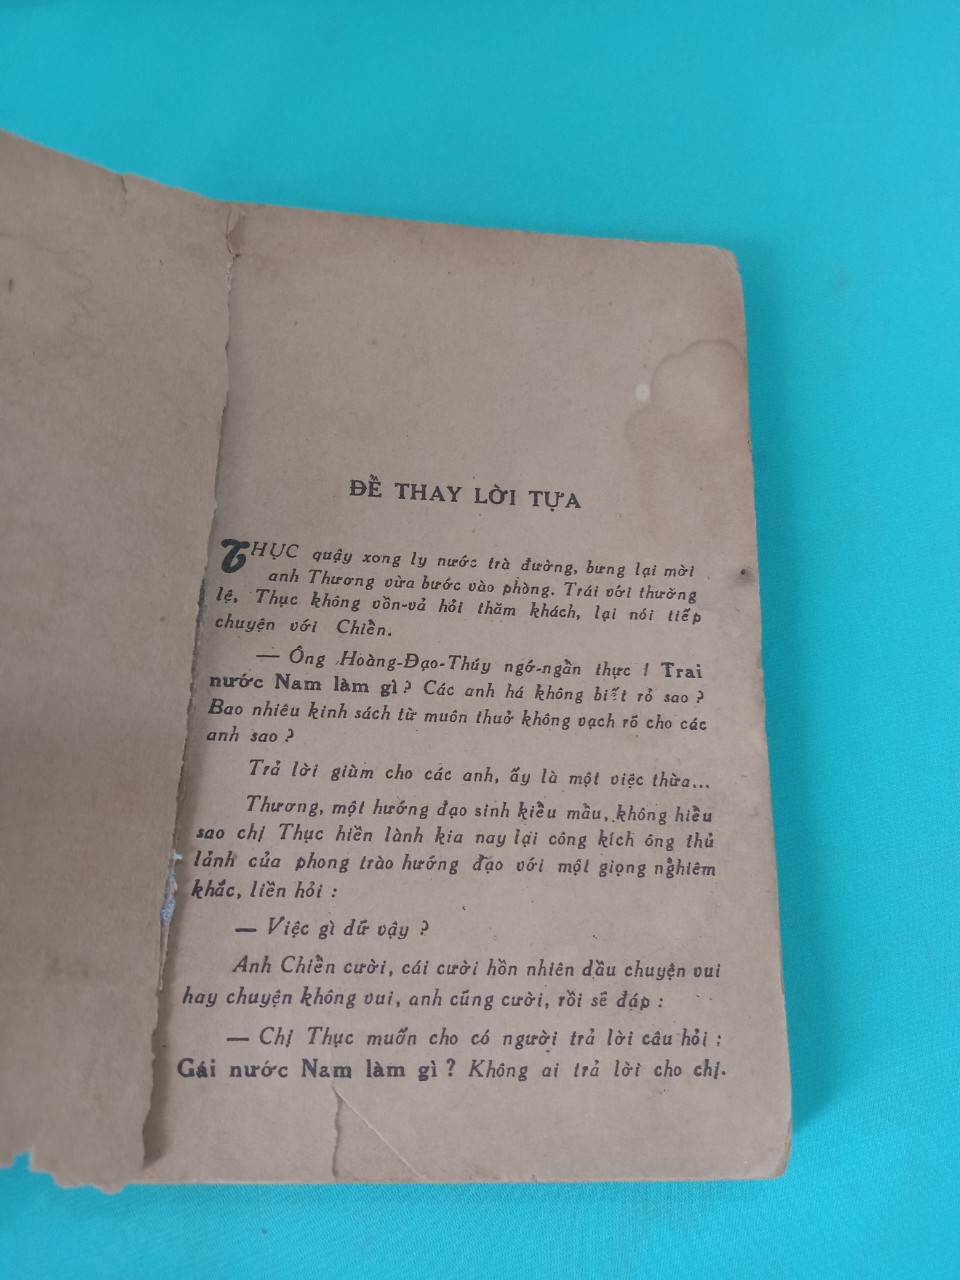 ĐỀ THAY LỜI TỰA
THỤC quậy xong ly nước trà đường, bưng lại mời
anh Thương vừa bước vào phòng. Trái với thường
lệ, Thục không vồn-vả hỏi thăm khách, lại nói tiếp
chuyện với Chiến.
— Ông Hoàng-Đạo-Thúy ngớ-ngẩn thực ! Trai
nước Nam làm gì ? Các anh há không biết rỏ sao ?
Bao nhiêu kinh sách từ muôn thuở không vạch rõ cho các
anh sao ?
Trả lời giùm cho các anh, ấy là một việc thừa...
Thương, một hướng đạo sinh kiểu mẫu, không hiểu
sao chị Thục hiền lành kia nay lại công kích ông thủ
lảnh của phong trào hướng đạo với một giọng nghiêm
khắc, liền hỏi :
— Việc gì dữ vậy ?
Anh Chiến cười, cái cười hồn nhiên dầu chuyện vui
hay chuyện không vui, anh cũng cười, rồi sẽ đáp :
— Chị Thục muốn cho có người trả lời câu hỏi :
Gái nước Nam làm gì ? Không ai trả lời cho chị.